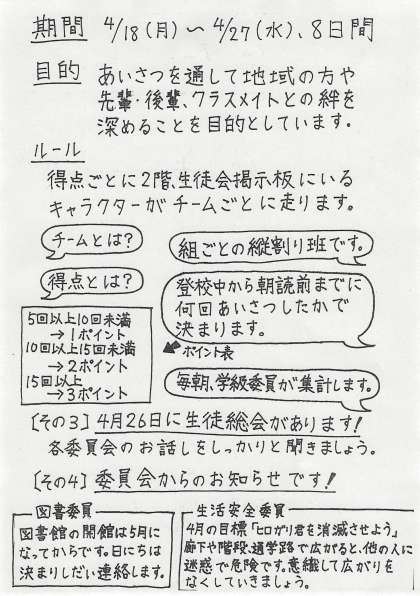 期間 4/18(月)～4/27(水)、8日間
目的 あいさつを通して地域の方や
先輩・後輩、クラスメイトとの絆を
深めることを目的としています。
ルール
得点ごとに2階、生徒会掲示板にいる
キャラクターがチームごとに走ります。
チームとは?
組ごとの縦割り班です。
得点とは?
登校中から朝読前までに
何回あいさつしたかで
決まります。
ポイント表
5回以上10回未満
→1ポイント
10回以上15回未満
→2ポイント
15回以上
→3ポイント
毎朝、学級委員が集計します。
[その3] 4月26日に生徒総会があります!
各委員会のお話しをしっかりと聞きましょう。
[その4] 委員会からのお知らせです!
図書委員
図書館の開館は5月に
なってからです。日にちは
決まりしだい連絡します。
生活安全委員
4月の目標「ヒロガリ君を消滅させよう」
廊下や階段、通学路で広がると、他の人に
迷惑で危険です。意識して広がりを
なくしていきましょう。